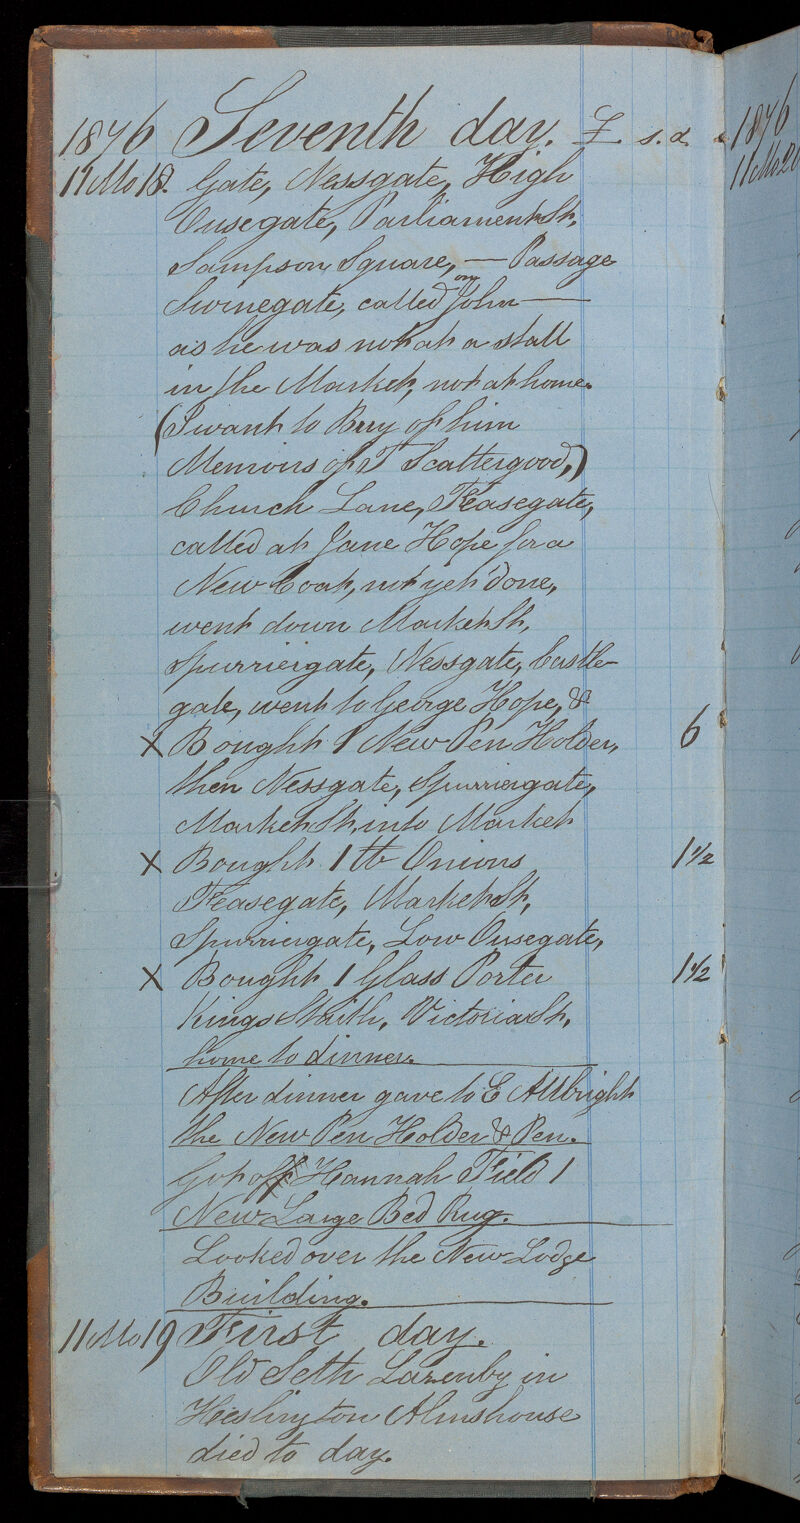 1876 Seventh day. £. s. d.
11 Mo 18. Gate, Nessgate, High
Ousegate, Parliament St,
Sampson Square, — Passage
Swinegate, called on John —
as he was not at a stall
in the Market, not at home.
(I want to Buy of him
Memoirs of T Scattergood,)
Church Lane, Feasegate,
called at Jane Hope for a
New Coat, not yet done,
went down Market St,
Spurriergate, Nessgate, Castle-
gate, went to George Hope, &
X Bought 1 New Pen Holder, 6
then Nessgate, Spurriergate,
Market St, into Market
X Bought 1 lb Onions 1 1/2
Feasegate, Market St,
Spurriergate, Low Ousegate,
X Bought 1 Glass Porter 1 1/2
Kings Staith, Victoria St,
home to dinner.
After dinner gave to E Allbright
the New Pen Holder & Pen.
Got off Hannah Field 1
New Large Bed Rug.
Looked over the New Lodge
Building.
11 Mo 19 First day.
Old Seth Lazenby in
Heslington Almshouse
died to day.
1876
11 Mo 20